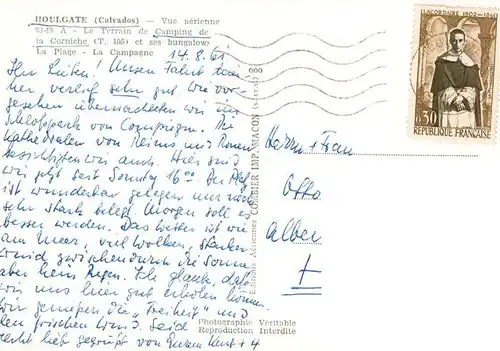 HOULGATE (Calvados) — Vue aérienne
23-49 A - Le Terrain de Camping de
la Corniche (T. 105) et ses bungalows
La Plage - La Campagne
14.8.61
Ihr Lieben! Unsere Fahrt hier-
her verlief sehr gut wie vor-
gesehen übernachteten wir im
Schloßpark von Compiègne. Die
Kathedralen von Reims und Rouen
besichtigten wir auch. Hier sind
wir jetzt seit Sonntag 16.00. Der Platz
ist wunderbar gelegen nur noch
sehr stark belegt. Morgen soll es
besser werden. Das Wetter ist wie
am Meer, viel Wolken, starker
Wind zwischendurch die Sonne
aber kein Regen. Ich glaube, daß
wir uns hier gut erholen können.
Wir genießen die „Freiheit" und
den frischen Wind. Seid
recht lieb gegrüßt von Euren Kurt + 4
Photographie Véritable
Reproduction Interdite
Editions Aériennes COMBIER IMP. MACON
000
LACORDAIRE 1802-1861
0,30
REPUBLIQUE FRANÇAISE
Herrn + Frau
Otto
Alber